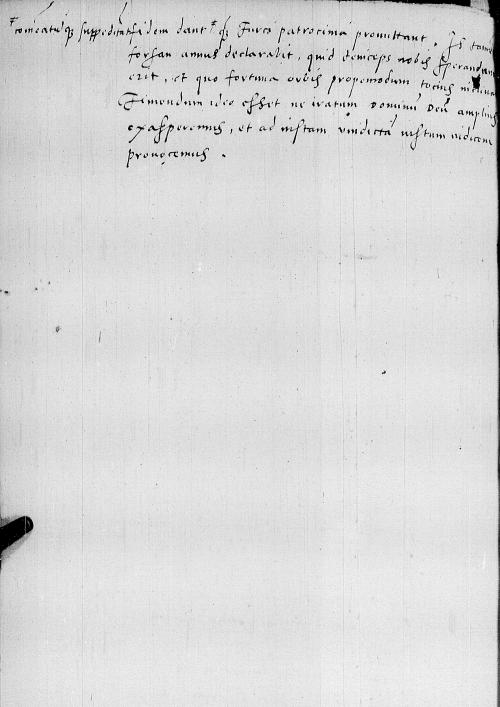 com̄eatū q̄z suppeditāt fidem dant q̄z Turci patrocinia promittant. Is tamē
forsan annus declarabit, quid deinceps nobis sperandum
erit, et quo fortuna orbis propemodum totius
Timendum ideo esset ne iratum Dominū Deū amplius
exasperemus, et ad iustam vindictā iustum iudicem
provocemus.